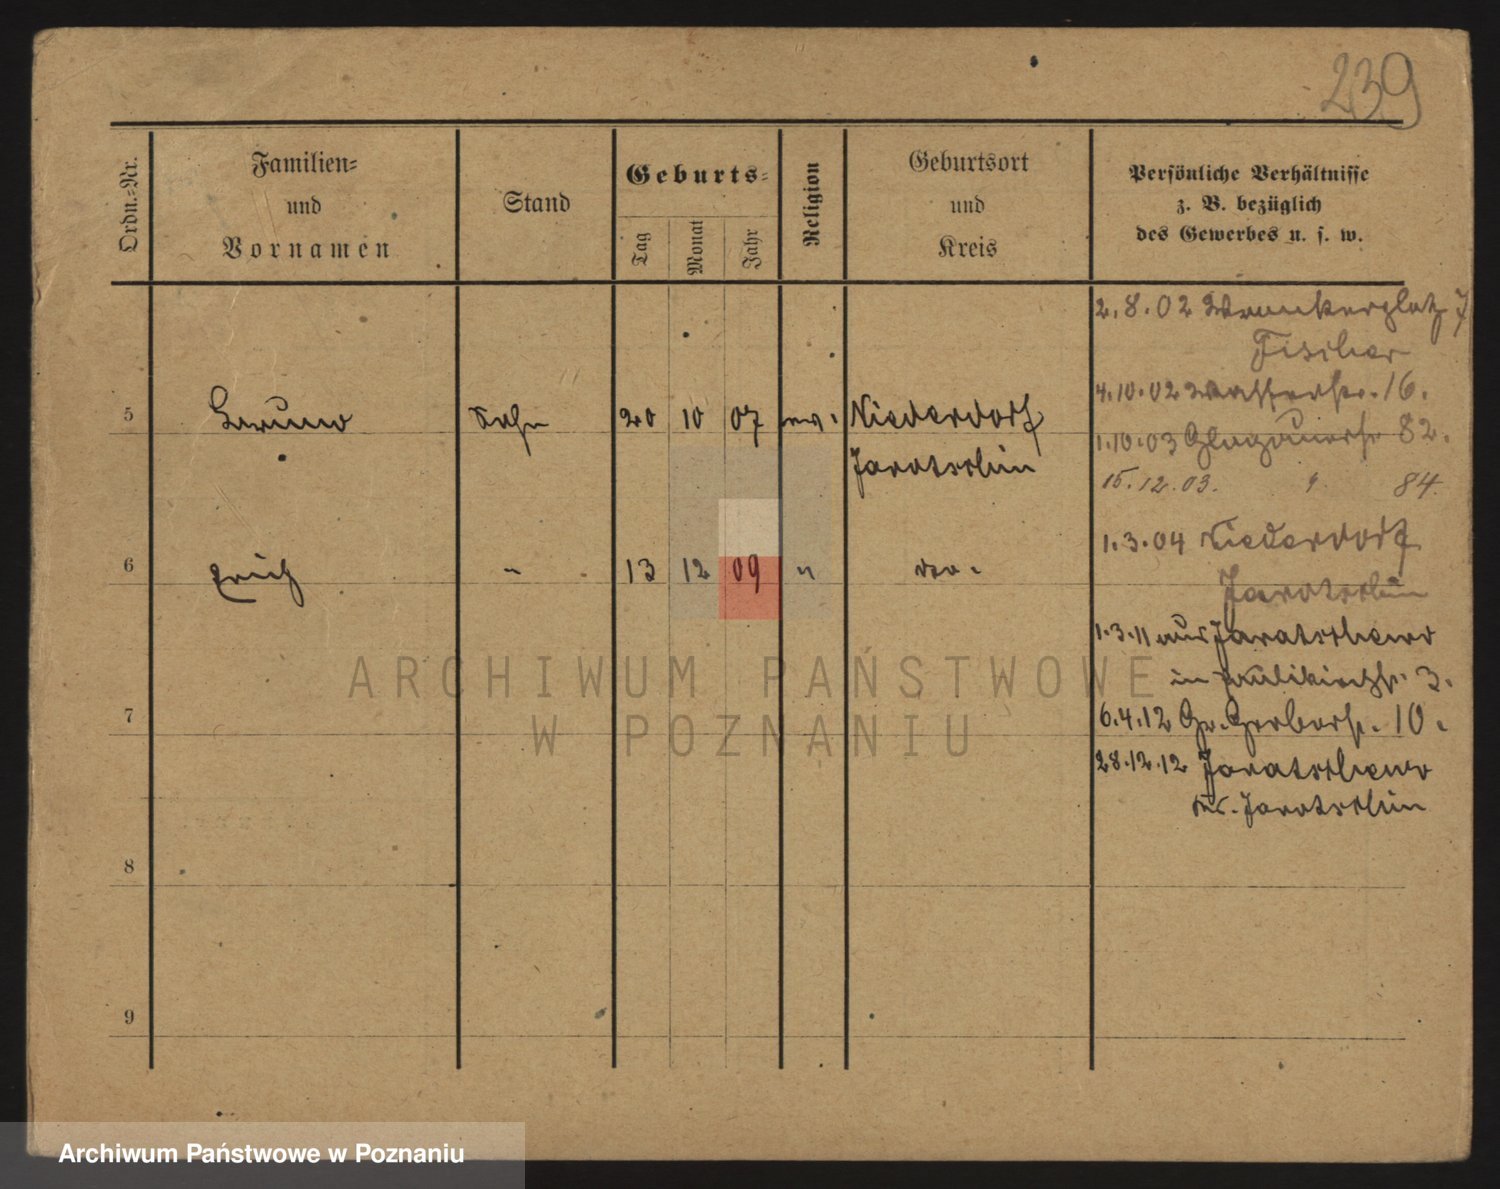 239
Ordn.-Nr.
Familien-
und
Vornamen
Stand
Geburts-
Tag
Monat
Jahr
Religion
Geburtsort
und
Kreis
Persönliche Verhältnisse
z. B. bezüglich
des Gewerbes u. s. w.
2.8.02 Wronkerplatz 7
Fischer
4.10.02 Wasserstr. 16.
5 Bruno Sohn 20 10 07 ev. Niederdorf
1.10.03 Glogauerstr. 82.
Jarotschin
15.12.03. " 84.
1.3.04 Niederdorf
6 Erich " 13 12 09 " do.
Jarotschin
1.3.11 aus Jaratschewo
in Paulikirchstr. 3.
7
6.4.12 Gr. Gerberstr. 10.
28.12.12 Jaratschewo
Jarotschin
8
9
ARCHIWUM PAŃSTWOWE
W POZNANIU
Archiwum Państwowe w Poznaniu